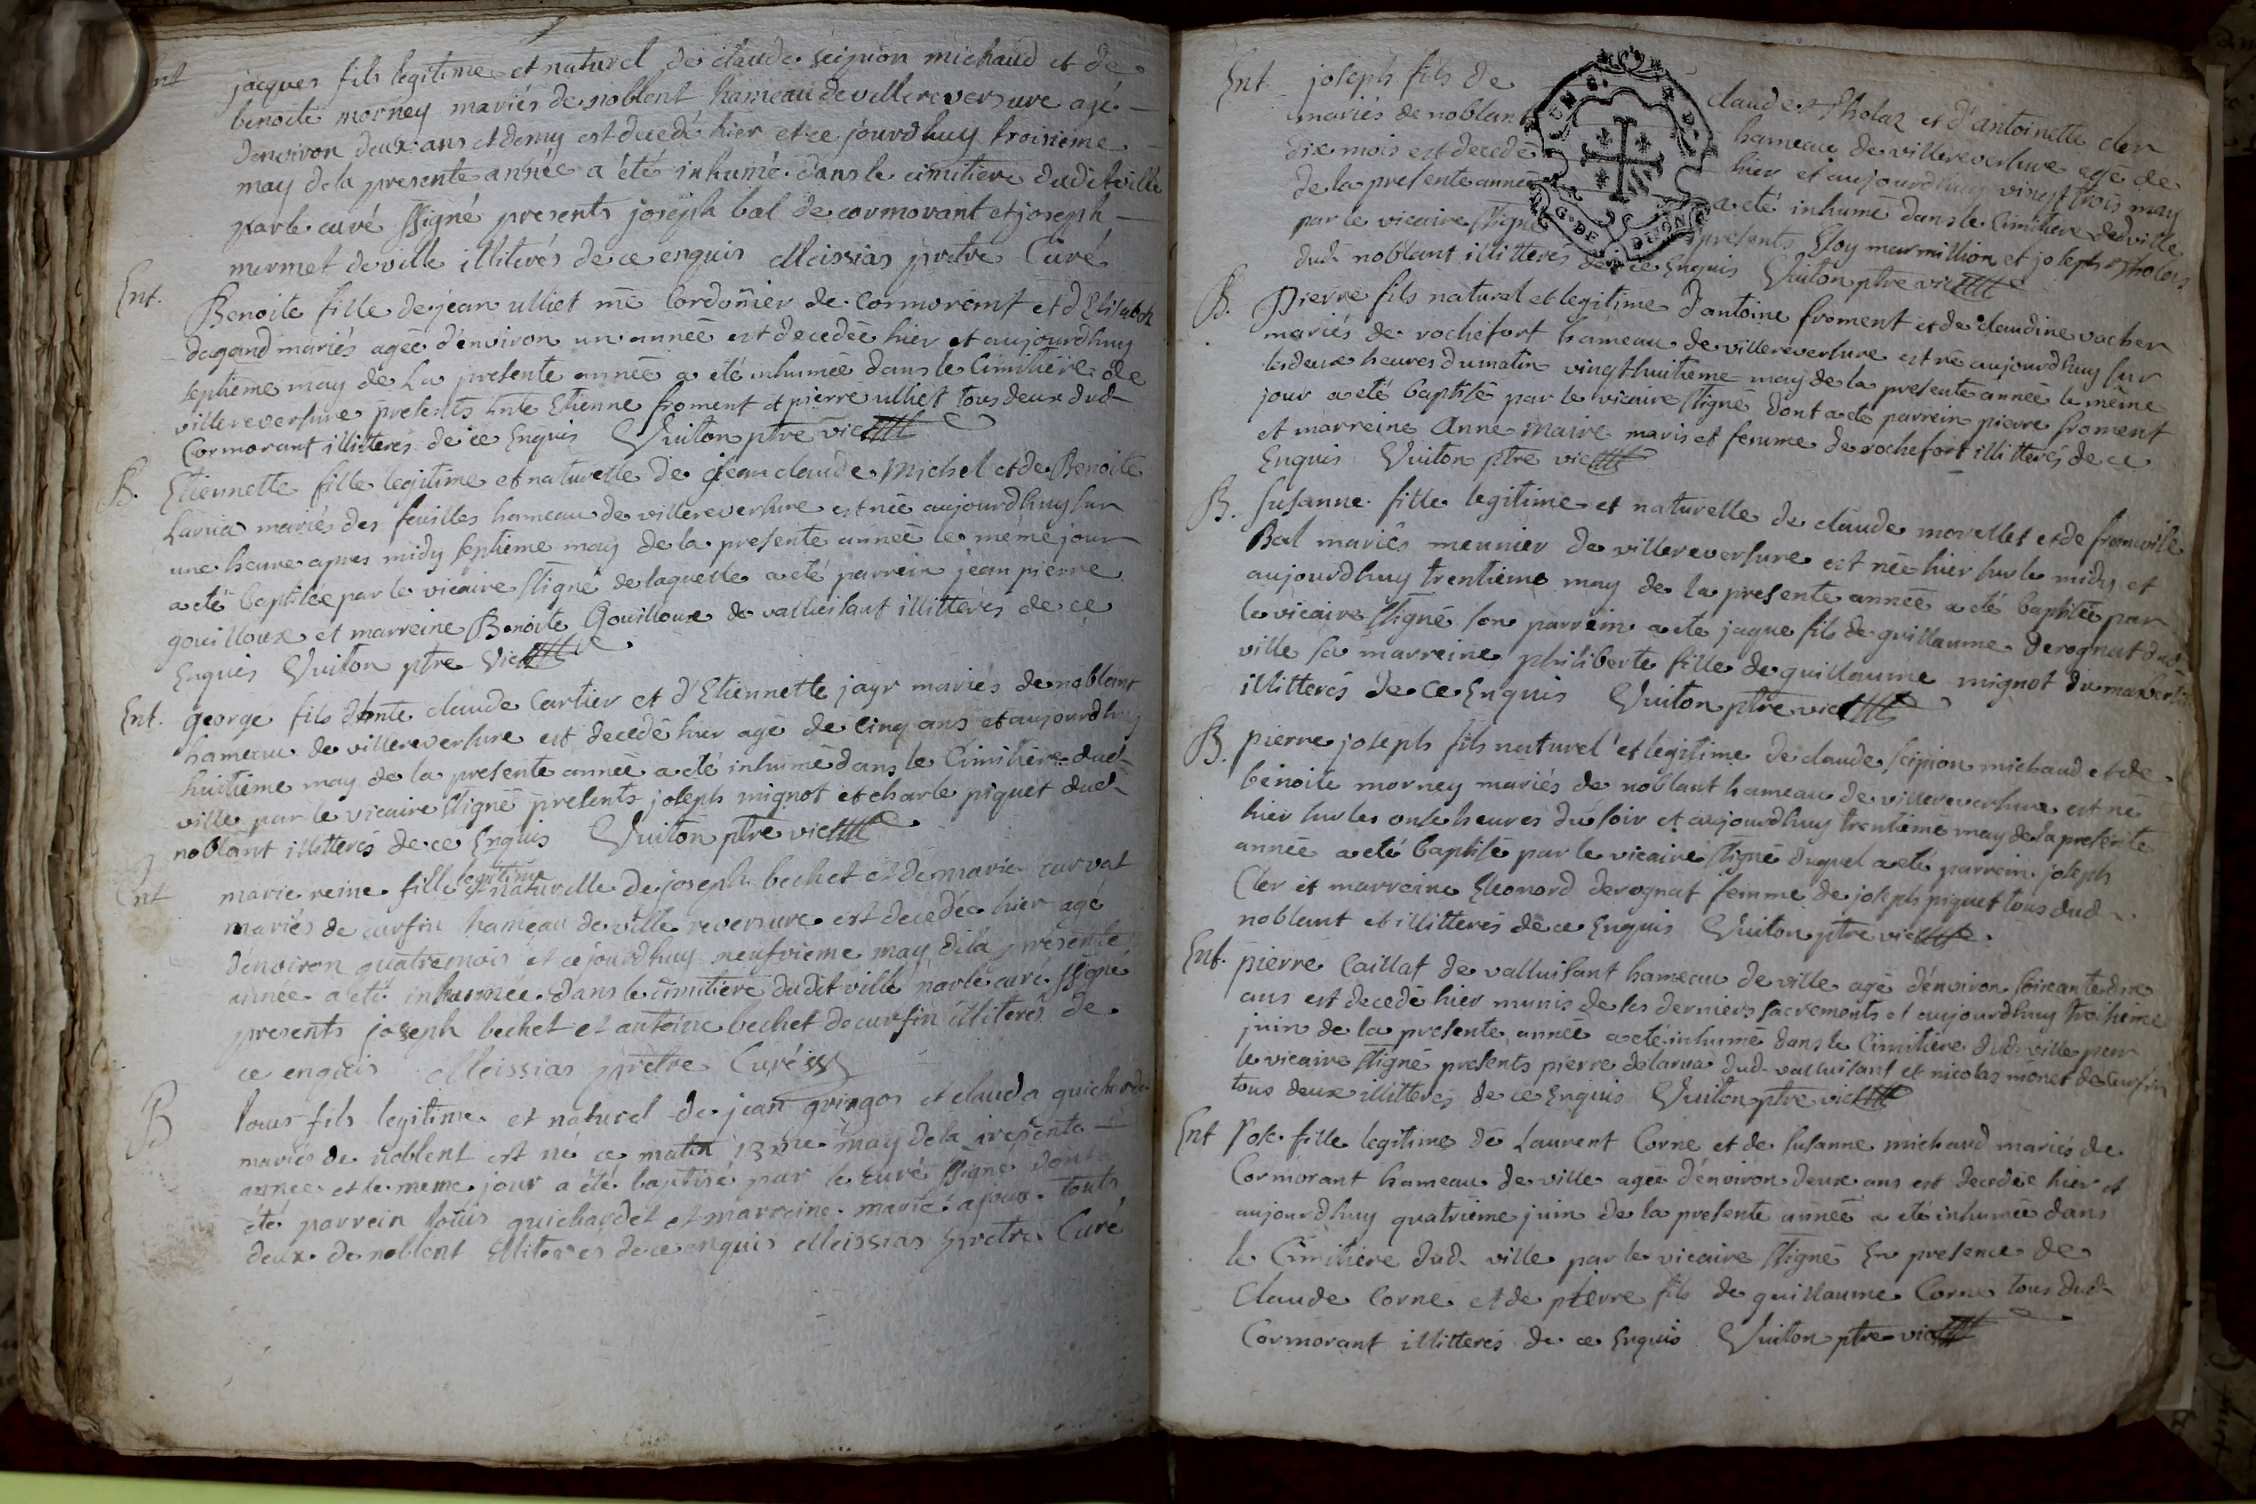 Ent jacques fils legitime et naturel de claude scipion michaud et de
benoite morney mariés de noblent hameau de villereversure agé
denviron deux ans et demy est decedé hier et ce jourdhuy troisieme
may dela presente année a été inhumé dans le cimitiere dudit ville
par le curé ssigné presents joseph bal de cormorant et joseph
mermet de ville illiterés de ce enquis Meissias pretre Curé
Ent. Benoite fille de jean ulliet me Cordonier de Cormorant et d'Elisabeth
dagand mariés agée d'environ un année est decedée hier et aujourdhuy
septieme may de La presente année a été inhumée dans le Cimitiere de
villereversure presents hnte Etienne froment et pierre ulliet tous deux dud.
Cormorant illitterés de ce Enquis Vuiton ptre vic
B. Etiennette fille legitime et naturelle de jean claude Michel et de Benoite
Larua mariés des feuilles hameau de villereversure est née aujourdhuy sur
une heure apres midy septieme may de la presente année le même jour
a eté baptisée par le vicaire ssigné de laquelle a eté parrein jean pierre
gouilloux et marreine Benoite Gouilloux de valluisant illitterés de ce
Enquis Vuiton ptre vic
Ent. george fils d'hnte claude Cartier et d'Etiennette jayr mariés de noblant
hameau de villereversure est decedé hier agé de cinq ans et aujourdhuy
huitieme may de la presente année a eté inhumé dans le Cimitiere dud.
ville par le vicaire ssigné presents joseph mignot et charle piquet dud.
noblant illitterés de ce Enquis Vuiton ptre vic
Ent marie reine fille legitime et naturelle de joseph bechet et de marie curvat
mariés de curfin hameau de ville reversure est decedée hier agé
d'environ quatre mois et ce jourdhuy neufvieme may dela presente
année a eté inhumée dans le cimitiere dudit ville par le curé ssigné
presents joseph bechet et antoine bechet de curfin illiterés de
ce enquis Meissias pretre Curé
B louis fils legitime et naturel de jean gringos et clauda guichardet
mariés de noblent est né ce matin 13me may dela presente
année et le meme jour a été baptisé par le curé ssigné dont a
été parrein louis guichardet et marreine marie ajoux touts
deux de noblent illiterés de ce enquis Meissias pretre Curé
Ent joseph fils de claude Tholaz et d'antoinette cler
mariés de noblant hameau de villereversure agé de
dix mois est decedé hier et aujourdhuy vingt trois may
de la presente année a eté inhumé dans le Cimitiere dud ville
par le vicaire ssigné presents Eloy marmillion et joseph Tholas
dud. noblant illitterés de ce Enquis Vuiton ptre vic
G. DE DIJON
B. Pierre fils naturel et legitime d'antoine froment et de claudine vacher
mariés de rochefort hameau de villereversure est né aujourdhuy sur
les deux heures du matin vingt huitieme may de la presente année le même
jour a eté baptisé par le vicaire ssigné dont a ete parrein pierre froment
et marreine Anne Maire maris et femme de rochefort illitterés de ce
Enquis Vuiton ptre vic
B. Susanne fille legitime et naturelle de claude morellet et de
Bal mariés meunier de villereversure est née hier sur le midy et
aujourdhuy trentieme may de la presente année a eté baptisée par
le vicaire ssigné son parrein a ete jaque fils de guillaume derognat dud.
ville sa marreine philiberte fille de guillaume mignot du
illitterés de ce Enquis Vuiton ptre vic
B. pierre joseph fils naturel et legitime de claude scipion michaud et de
benoite morney mariés de noblant hameau de villereversure est né
hier sur les onse heures du soir et aujourdhuy trentieme may de la presente
année a eté baptisé par le vicaire ssigné duquel a eté parrein joseph
Cler et marreine Eleonord derognat femme de joseph piquet tous dud.
noblant et illitterés de ce Enquis Vuiton ptre vic
Ent. pierre Caillat de valluisant hameau de ville agé d'environ soixante dix
ans est decedé hier munis de ses derniers sacrements et aujourdhuy troisieme
juin de la presente année a eté inhumé dans le Cimitiere dud. ville par
le vicaire ssigné presents pierre delarua dud. valluisant et nicolas monet de Curfin
tous deux illitterés de ce Enquis Vuiton ptre vic
Ent Rose fille legitime de Laurent Corne et de Susanne michaud mariés de
Cormorant hameau de ville agée d'environ deux ans est decedée hier et
aujourdhuy quatrieme juin de la presente année a eté inhumée dans
le Cimitiere dud. ville par le vicaire ssigné En presence de
Claude Corne et de pierre fils de guillaume Corne tous dud.
Cormorant illitterés de ce Enquis Vuiton ptre vic